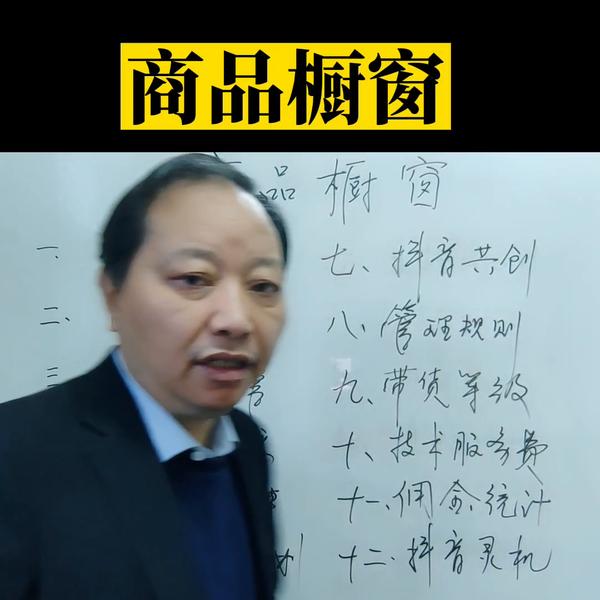 商品橱窗
品橱窗
一、
二、
三
七、抖音共创
八、管理规则
九、带债等级
十、技术服务费
十一、佣金统计
十二、抖音灵机